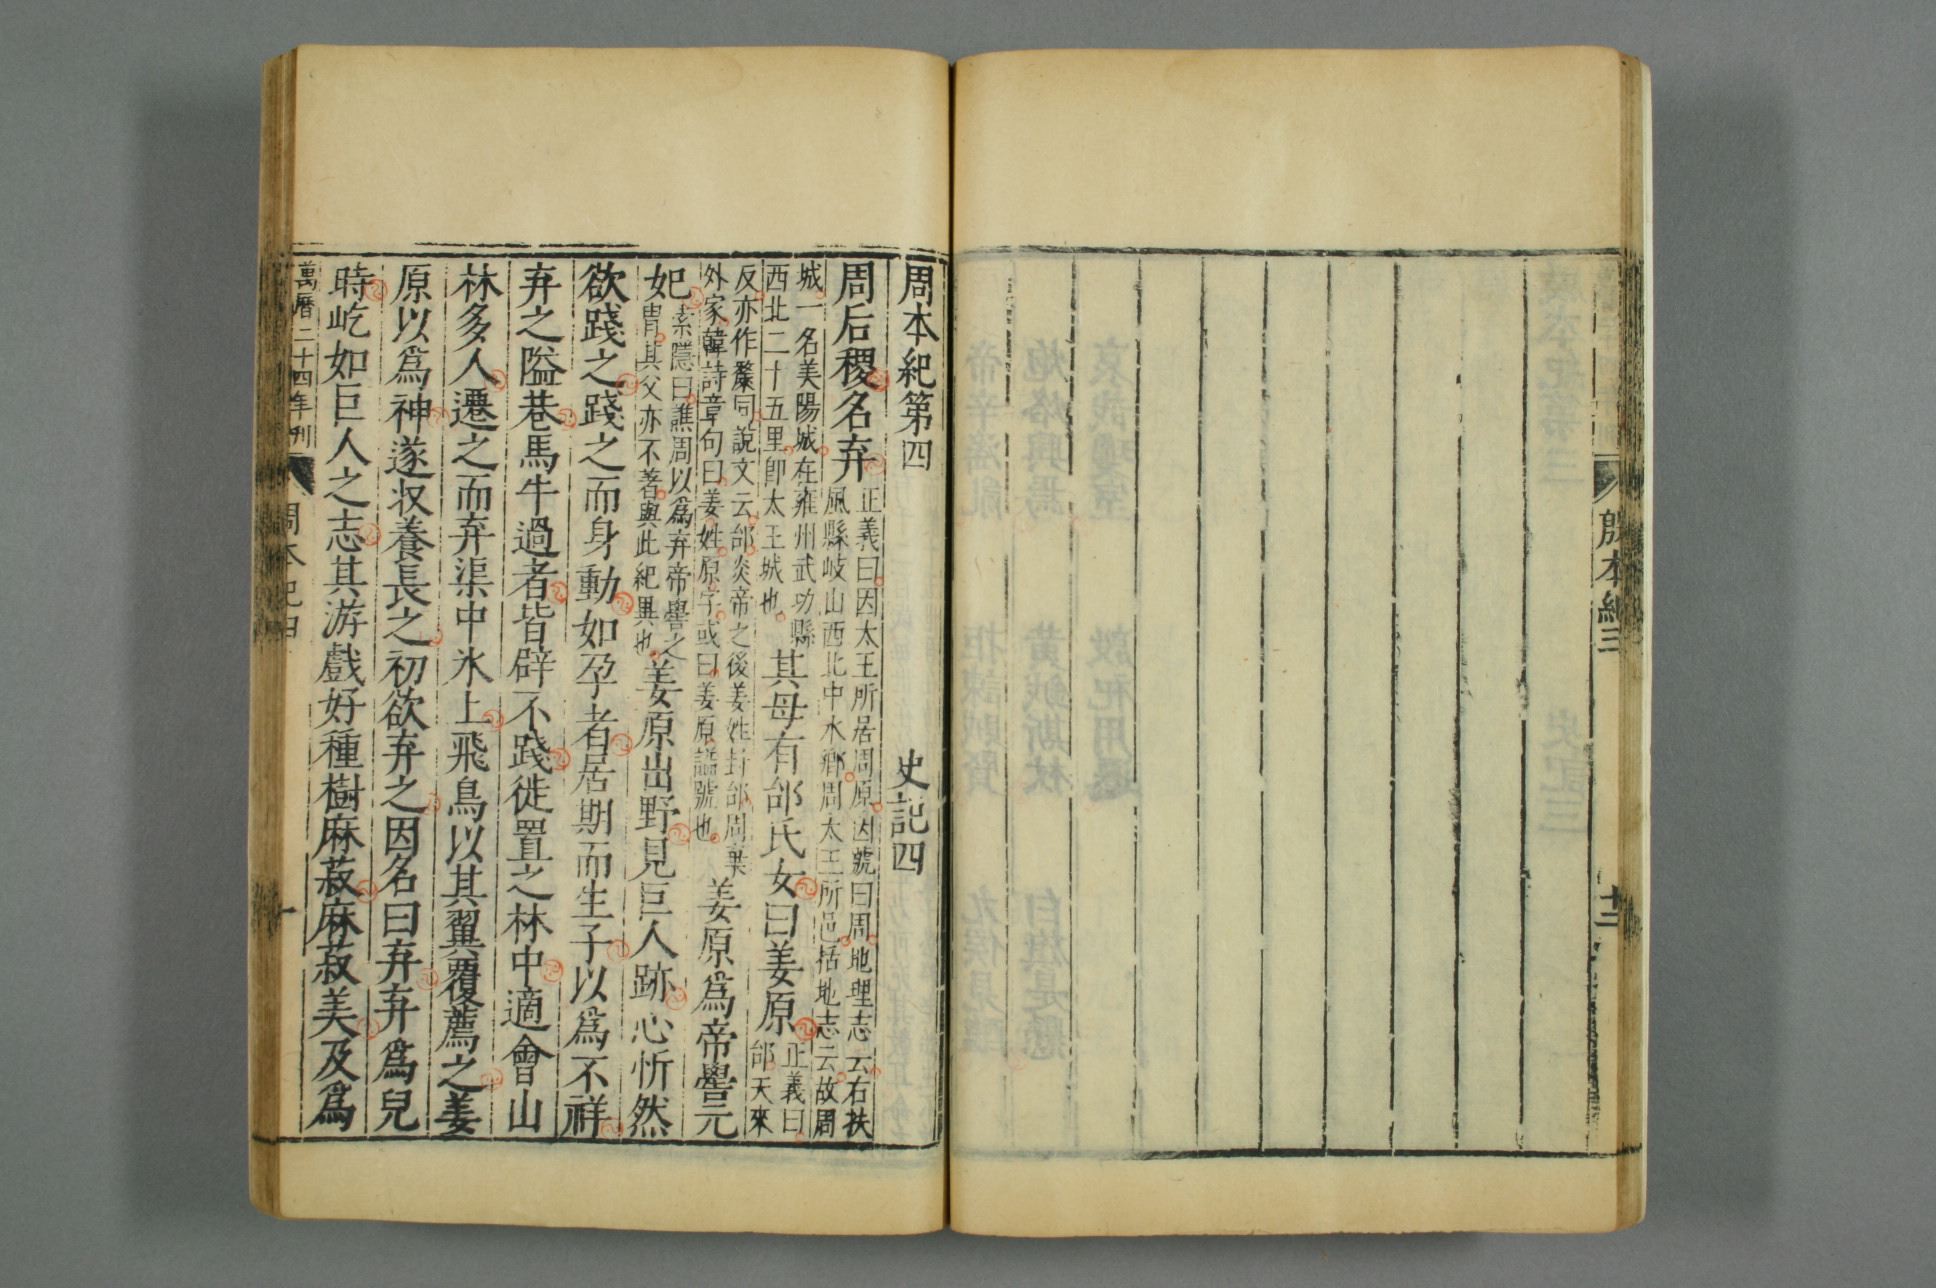 殷本紀三
十二
周本紀第四 史記四
周后稷名弃 正義曰因太王所居周原因號曰周地理志云右扶
風縣岐山西北中水鄉周太王所邑括地志云故周
城一名美陽城在雍州武功縣
西北二十五里卽太王城也 其母有邰氏女曰姜原 正義曰
邰天來
反亦作斄同說文云邰炎帝之後姜姓封邰周棄
外家韓詩章句曰姜姓原字或曰姜原諡號也 姜原爲帝嚳元
妃 索隱曰譙周以爲弃帝嚳之
冑其父亦不著與此紀異也 姜原出野見巨人跡心忻然
欲踐之踐之而身動如孕者居期而生子以爲不祥
弃之隘巷馬牛過者皆辟不踐徙置之林中適會山
林多人遷之而弃渠中氷上飛鳥以其翼覆薦之姜
原以爲神遂收養長之初欲弃之因名曰弃弃爲兒
時屹如巨人之志其游戲好種樹麻菽麻菽美及爲
萬曆二十四年刊
周本紀四
一